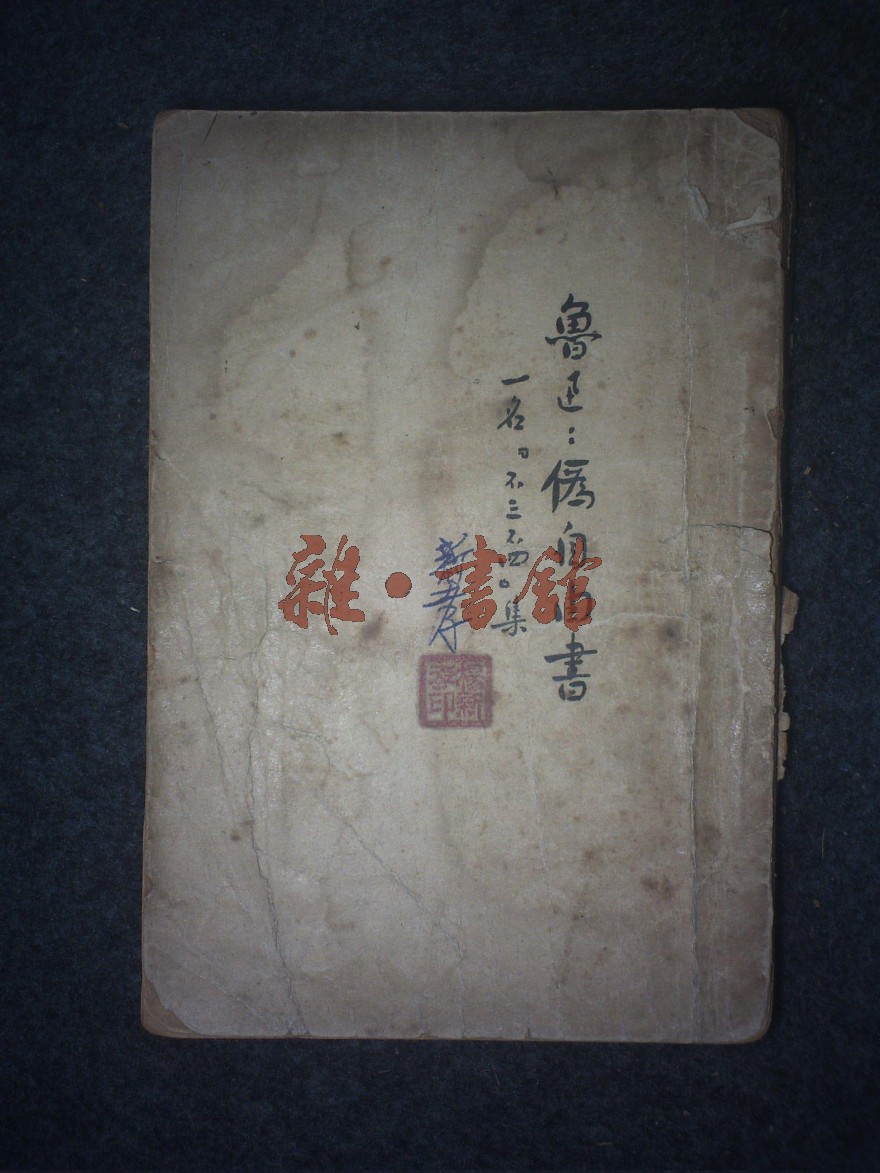 魯迅：僞自由書
一名「不三不四」集
雜·書館